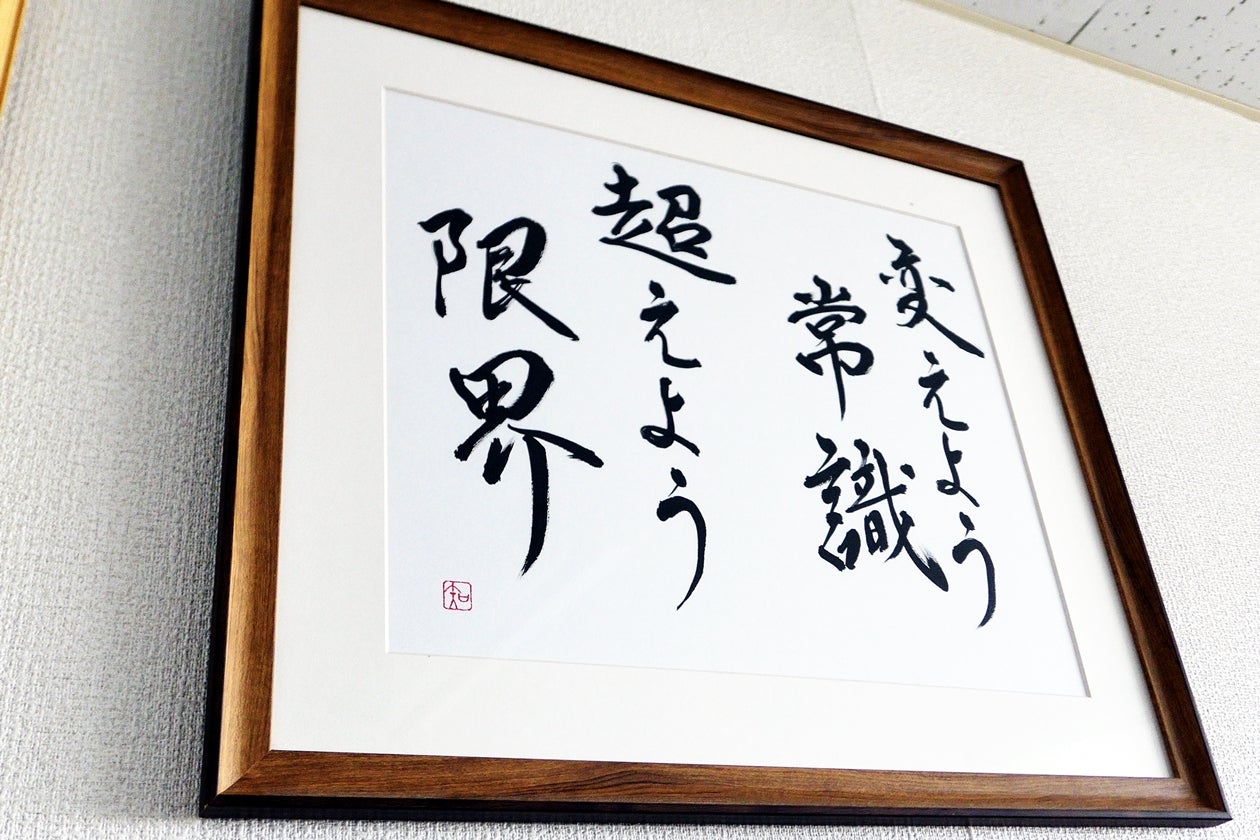 変えよう
常識
超えよう
限界
知